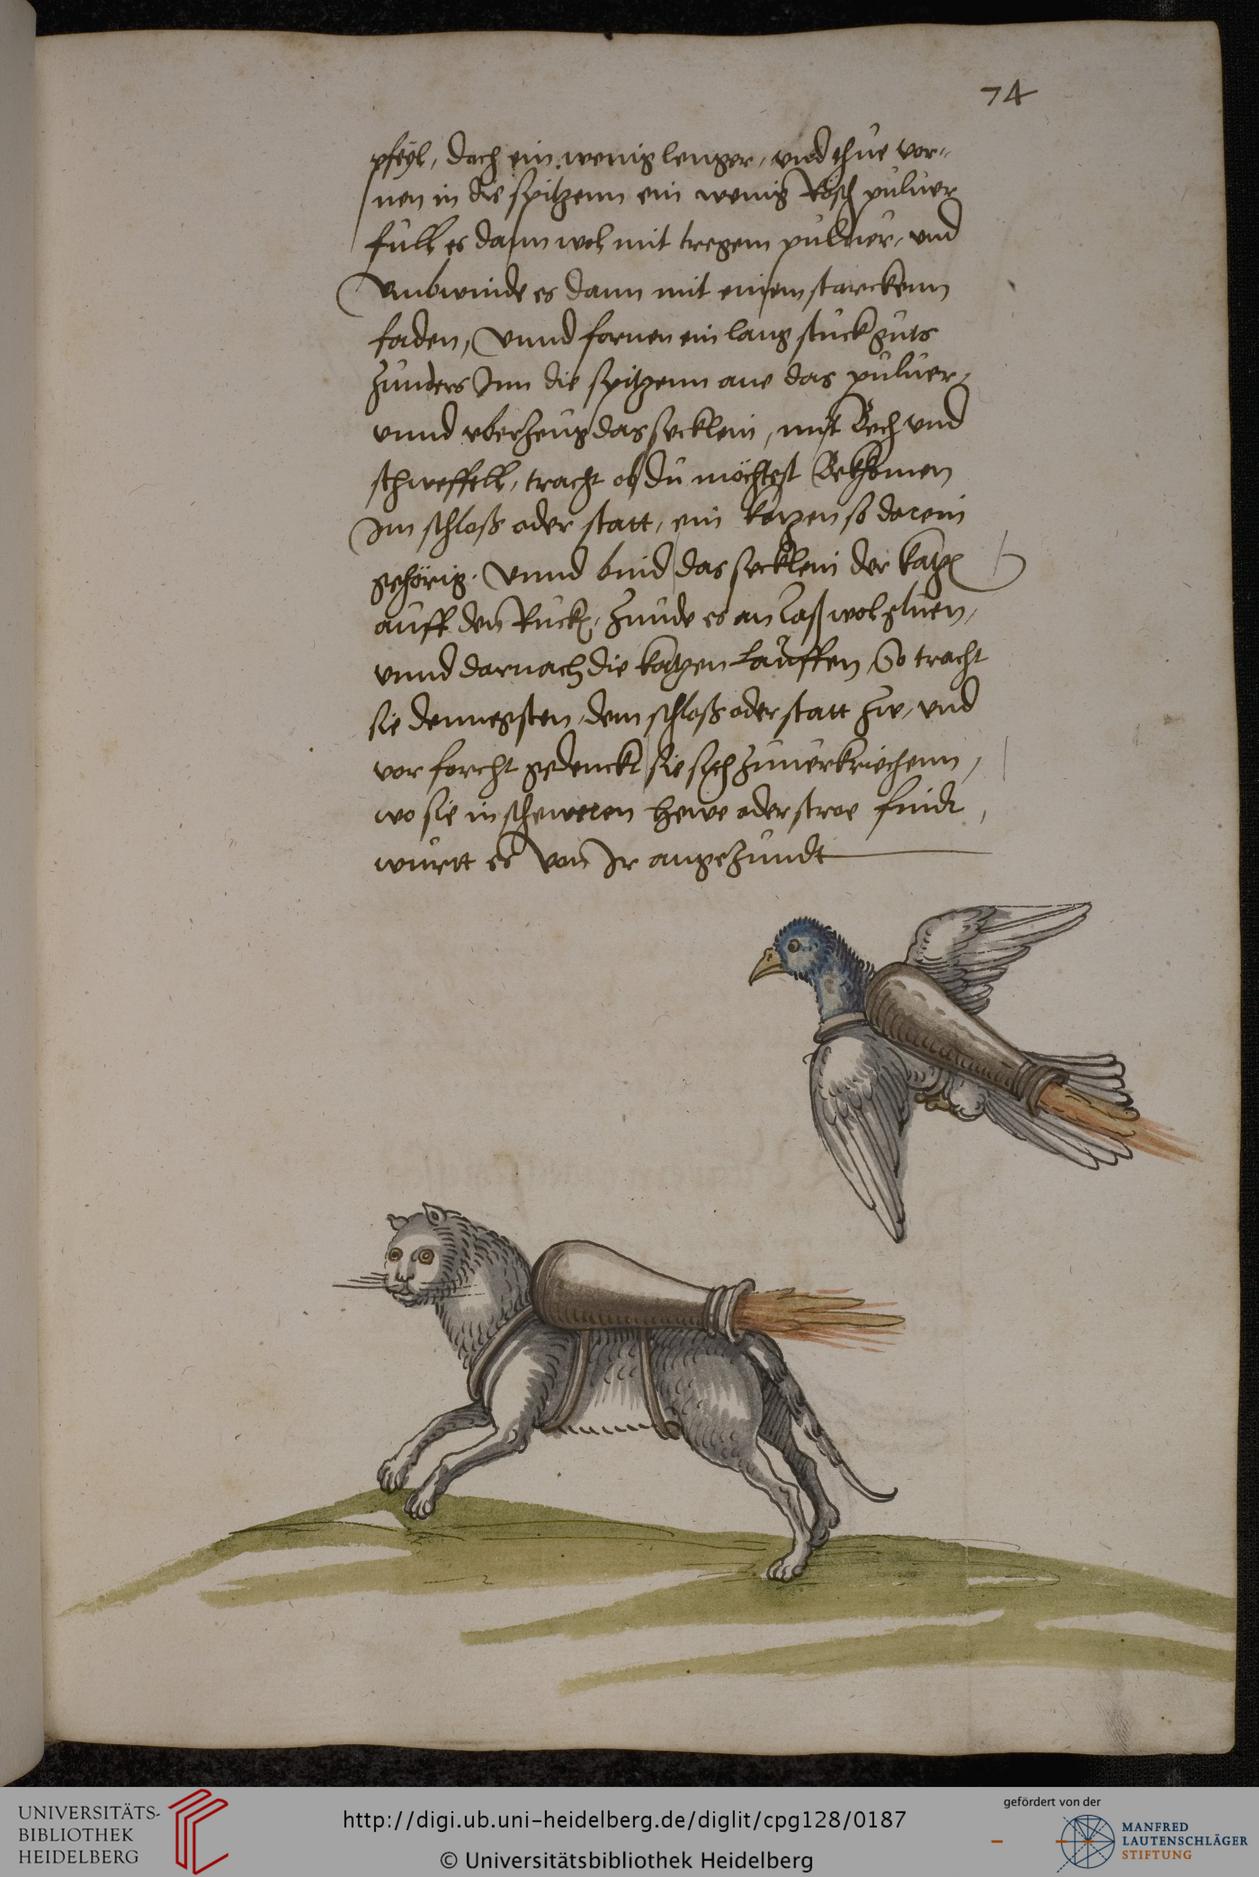 74
pfeyl, doch ein wenig lenger, vnd thue vor-
nen in die spitzenn ein wenig Rosch puluer
full es dann wol mit tregem puluer, vnd
vmbwinde es dann mit einem starckenn
faden, Vnnd fornen ein lang stuck guts
zunders Inn die spitzenn ane das puluer,
vnnd vberzeug das secklein, mit Bech vnd
schweffell, tracht ob du möchtest Bekhomen
Im schloß oder statt, ein katzen so darein
gehörig. Vnnd bind das secklein der katzen
auff den Ruck, Zunde es an Laß wol gluen,
vnnd darnach die katzen Lauffen, So tracht
sie dennegsten, dem schloß oder statt zu, vnd
vor forcht gedenckt sie sich zuuerkriechenn,
wo sie in scheweren hewe oder stroe findt,
wurtt es Von Ir angezundt
UNIVERSITÄTS-
BIBLIOTHEK
HEIDELBERG
http://digi.ub.uni-heidelberg.de/diglit/cpg128/0187
© Universitätsbibliothek Heidelberg
gefördert von der
MANFRED
LAUTENSCHLÄGER
STIFTUNG